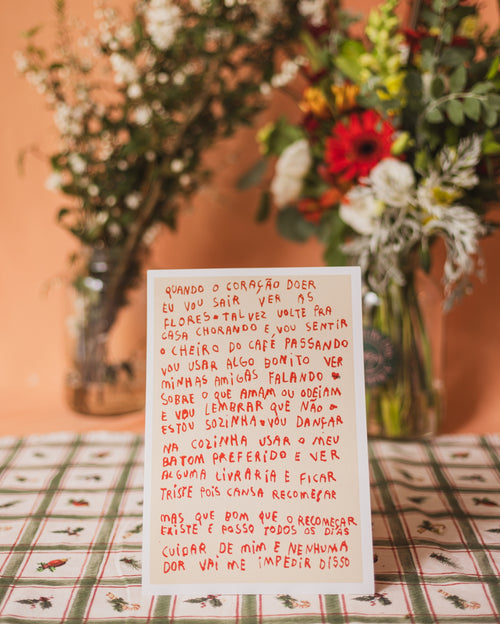 QUANDO O CORAÇÃO DOER
EU VOU SAIR VER AS
FLORES • TALVEZ VOLTE PRA
CASA CHORANDO E VOU SENTIR
O CHEIRO DO CAFÉ PASSANDO
VOU USAR ALGO BONITO VER
MINHAS AMIGAS FALANDO ❤
SOBRE O QUE AMAM OU ODEIAM
E VOU LEMBRAR QUE NÃO •
ESTOU SOZINHA • VOU DANÇAR
NA COZINHA USAR O MEU
BATOM PREFERIDO E VER
ALGUMA LIVRARIA E FICAR
TRISTE POIS CANSA RECOMEÇAR
MAS QUE BOM QUE O RECOMEÇAR
EXISTE E POSSO TODOS OS DIAS
CUIDAR DE MIM E NENHUMA
DOR VAI ME IMPEDIR DISSO